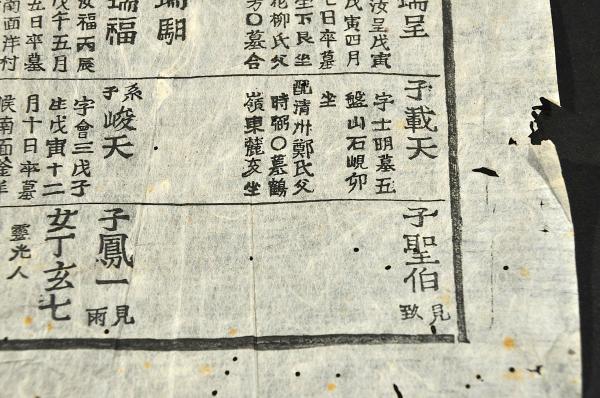 瑞呈
汝呈戊寅
戊寅四月
七日卒墓
坐下艮坐
花柳氏父
芳〇墓合
瑞馹
瑞福
汝福丙辰
戊午五月
五日卒墓
南面洋村
子載天
字士明墓五
盤山石峴卯
坐
配淸州鄭氏父
時弼〇墓鶴
嶺東麓亥坐
系子峻天
字會三戊子
生戊寅十二
月十日卒墓
候南面釜羊
子聖伯
見致
子鳳一
見雨
女丁玄七
靈光人